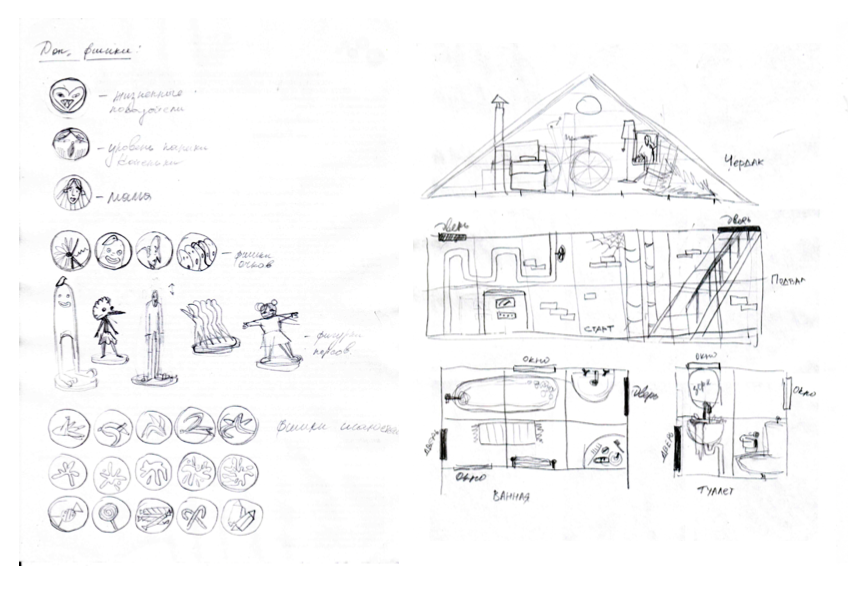 Доп. фишки:
- жизненные
показатели
- уровень паники
Ванельки
- мама
- фишки
очков
- фигурки
персов.
Фишки
Чердак
Дверь
Дверь
Подвал
СТАРТ
окно
Дверь
дверь
Окно
ВАННАЯ
окно
зерк
Окно
дверь
ТУАЛЕТ